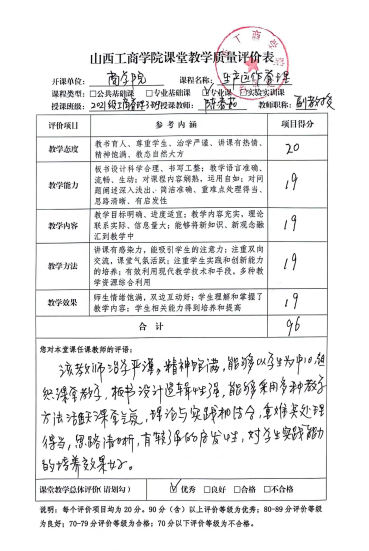 山西工商学院课堂教学质量评价表
开课单位：商学院 课程名称：生产运作管理
课程类型：□公共基础课 □专业基础课 ☑专业课 □实验实训课
授课班级： 授课教师： 教师职称：副教授
评价项目 参考内涵 项目得分
教学态度 教书育人、尊重学生、治学严谨、讲课有热情、 20
精神饱满、教态自然大方
教学能力 板书设计科学合理、书写工整；教学语言准确、 19
流畅、生动；对课程内容娴熟，运用自如；对问
题阐述深入浅出、简洁准确、重难点处理得当、
思路清晰，有启发性
教学内容 教学目标明确、进度适宜；教学内容充实，理论 19
联系实际、信息量大；能够将新知识、新观念融
汇到教学中
教学方法 讲课有感染力，能吸引学生的注意力；注重双向 19
交流，课堂气氛活跃；注重学生实践和创新能力
的培养；有效利用现代教学技术和手段，多种教
学资源综合利用
教学效果 师生情绪饱满，双边互动好；学生理解和掌握了 19
教学内容；学生相关能力得到培养和提高
合计 96
您对本堂课任课教师的评语：
该教师治学严谨。精神饱满，能够以学生为中心，组
织课堂教学，板书设计逻辑性强，能够采用多种教学
方法活跃课堂气氛，理论与实践相结合，重难点处理
得当，思路清晰，有较强的启发性，对学生实践能力
的培养效果好。
课堂教学总体评价（请划勾） ☑优秀 □良好 □合格 □不合格
说明：每个评价项目均为 20 分。90 分（含）以上评价等级为优秀；80-89 分评价等级
为良好；70-79 分评价等级为合格；70 分以下评价等级为不合格。